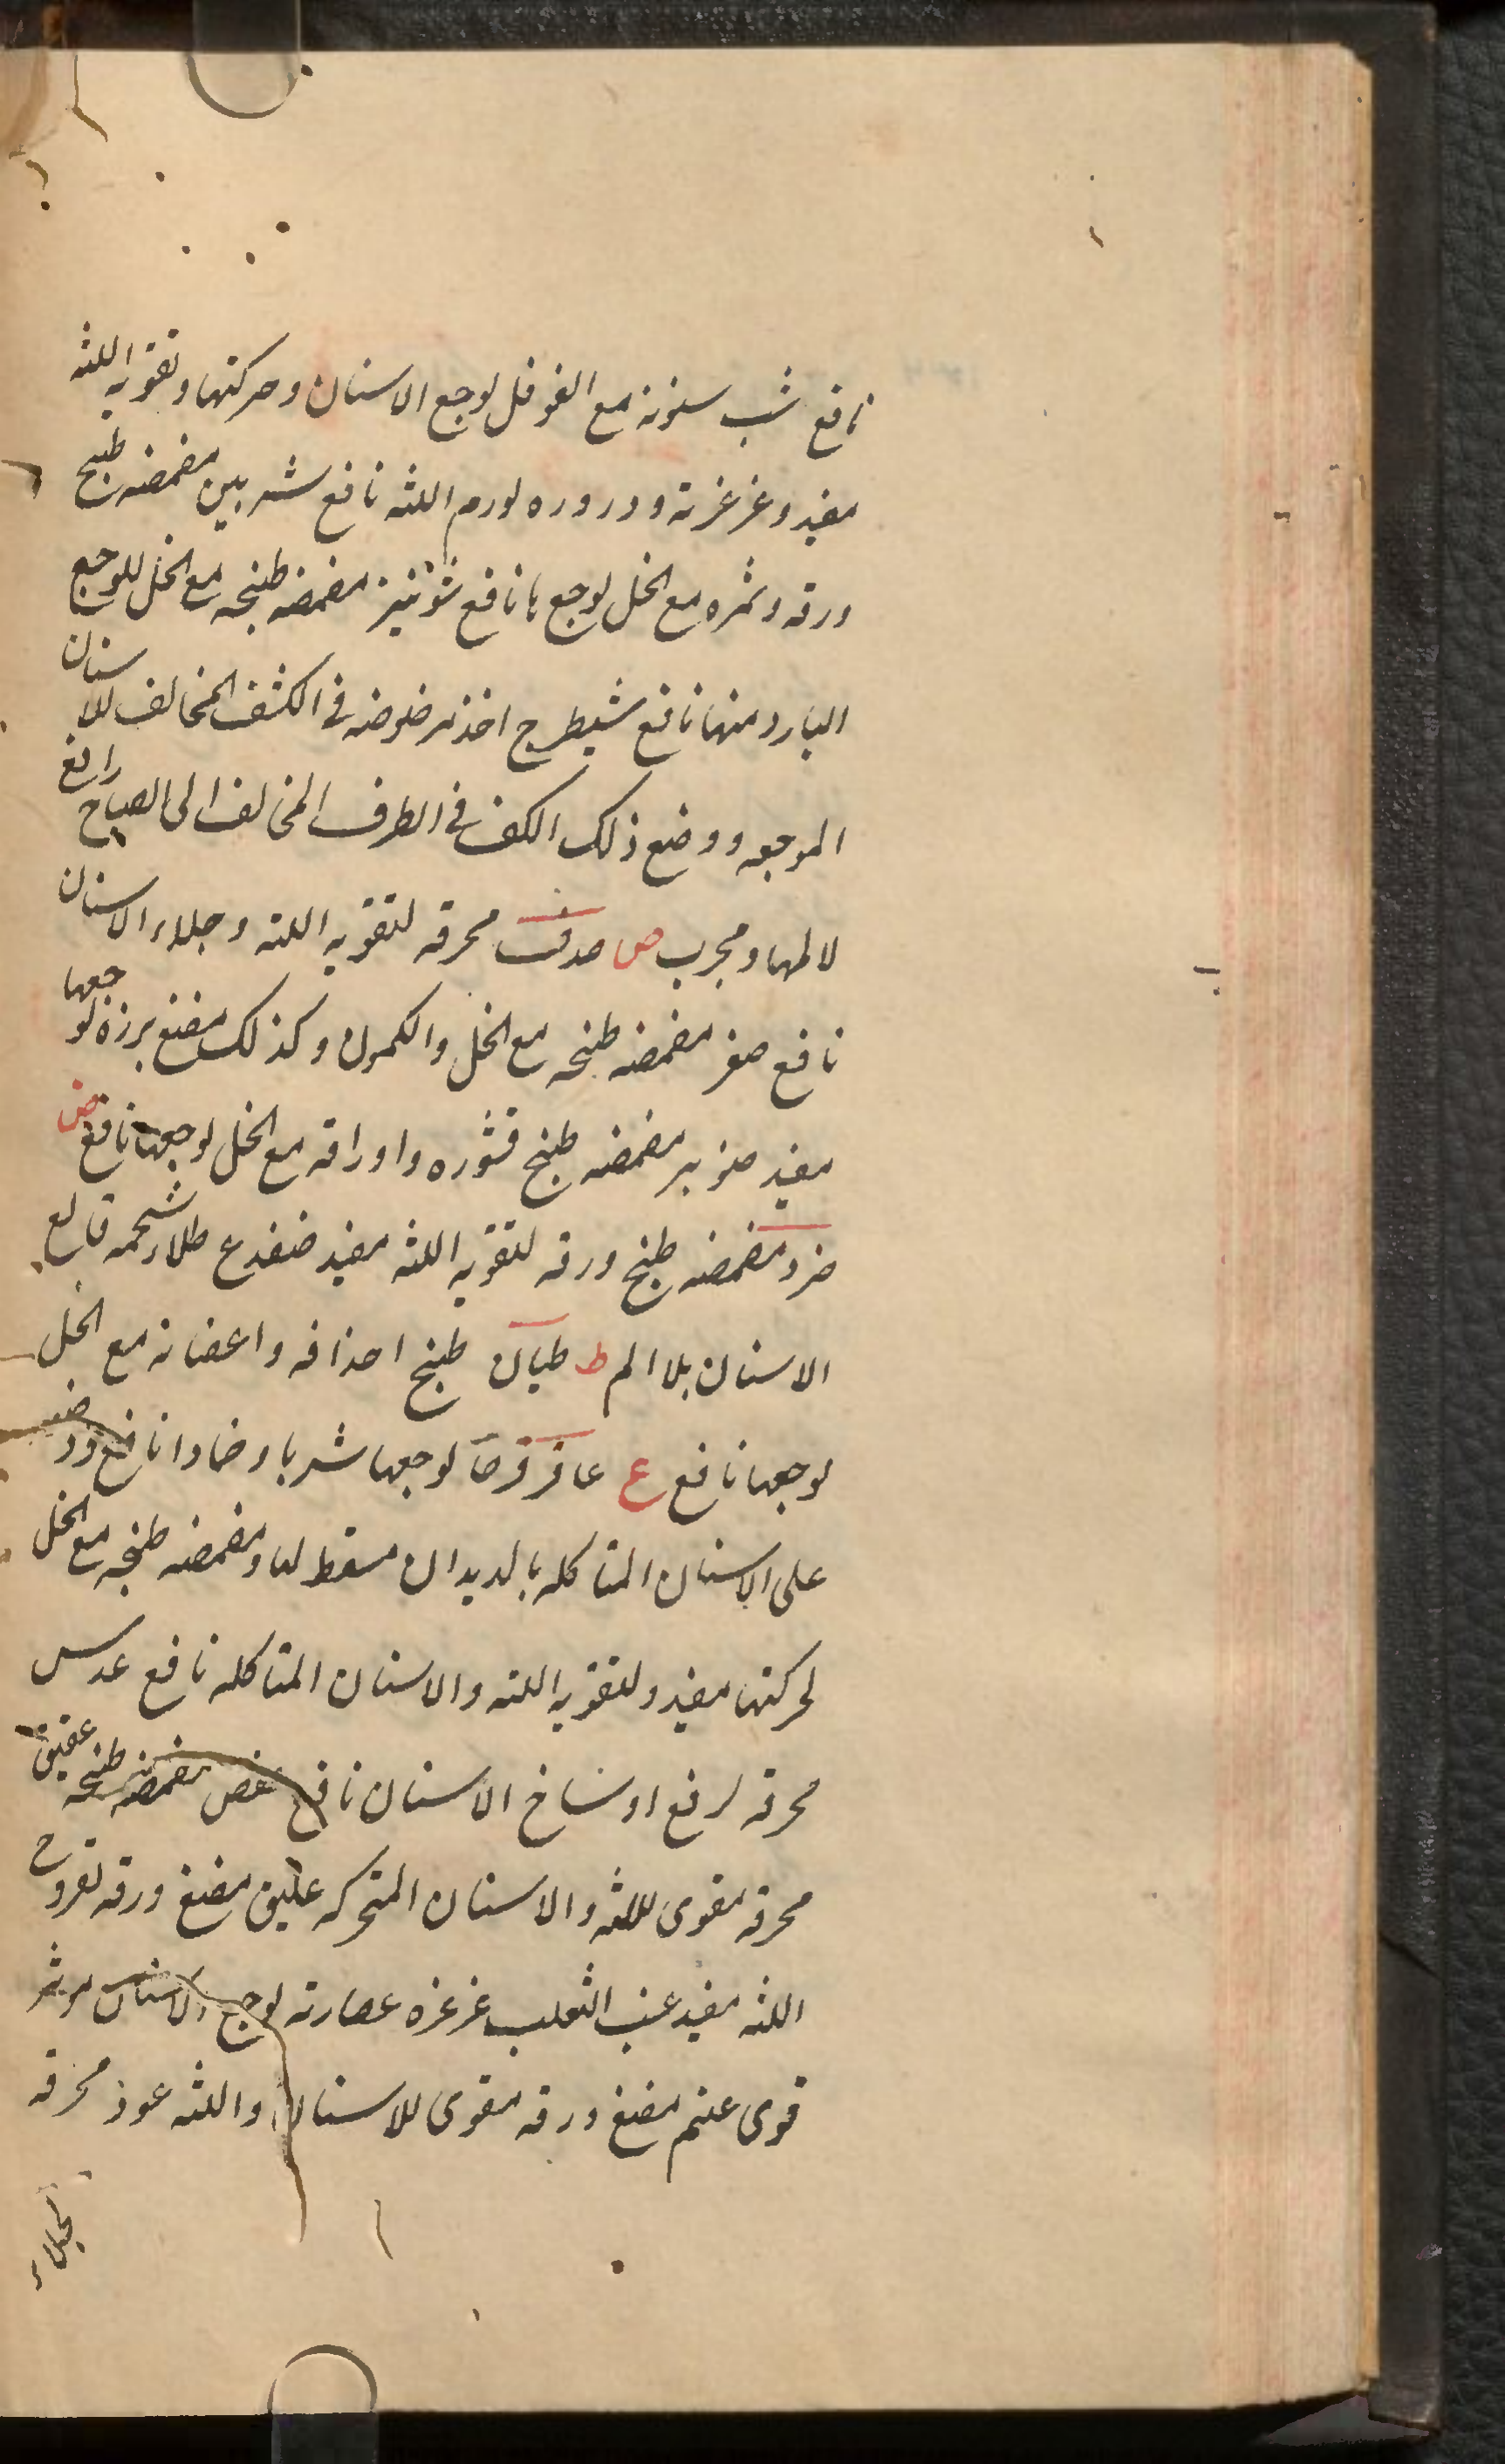 نافع شب سنونه مع الفوفل لوجع الاسنان وحركتها وتقويه اللثه
مفيد وغرغرته وذروره لورم اللثه نافع شربين مضمضه طبخ
ورقه وثمره مع الخل لوجعها نافع شونيز مضمضه طبخه مع الخل للوجع
البارد منها نافع شيطرج اخذ مرضوضه فى الكتف المخالف للاسنان
الموجعه ووضع ذلك الكف فى الطرف المخالف الى الصباح رافع
لالمها ومجرب ص صدف محرقه لتقويه اللثه وجلاء الاسنان
نافع صعتر مضمضه طبخه مع الخل والكمون وكذلك مضغ برزه لوجعها
مفيد صنوبر مضمضه طبخ قشوره واوراقه مع الخل لوجعها نافع ض
ضرو مضمضه طبخ ورقه لتقويه اللثه مفيد ضفدع طلاء شحمه قالع
الاسنان بلا الم ط طيان طبخ اغصانه مع الخل
لوجعها نافع ع عاقرقرحا لوجعها شربا وضمادا نافع ووضعه
على الاسنان المتاكله بالديدان مسقط لها ومضمضه طبخه مع الخل
لحركتها مفيد ولتقويه اللثه والاسنان المتاكله نافع عدس
محرقه لرفع اوساخ الاسنان نافع عفص مضمضه طبخه عقيق
محرقه مقوى للثه والاسنان المتحركه عليق مضغ ورقه لقروح
اللثه مفيد عنب الثعلب غرغره عصارته لوجع الاسنان موثر
قوى عنم مضغ ورقه مقوى للاسنان واللثه عود محرقه
لجلاء